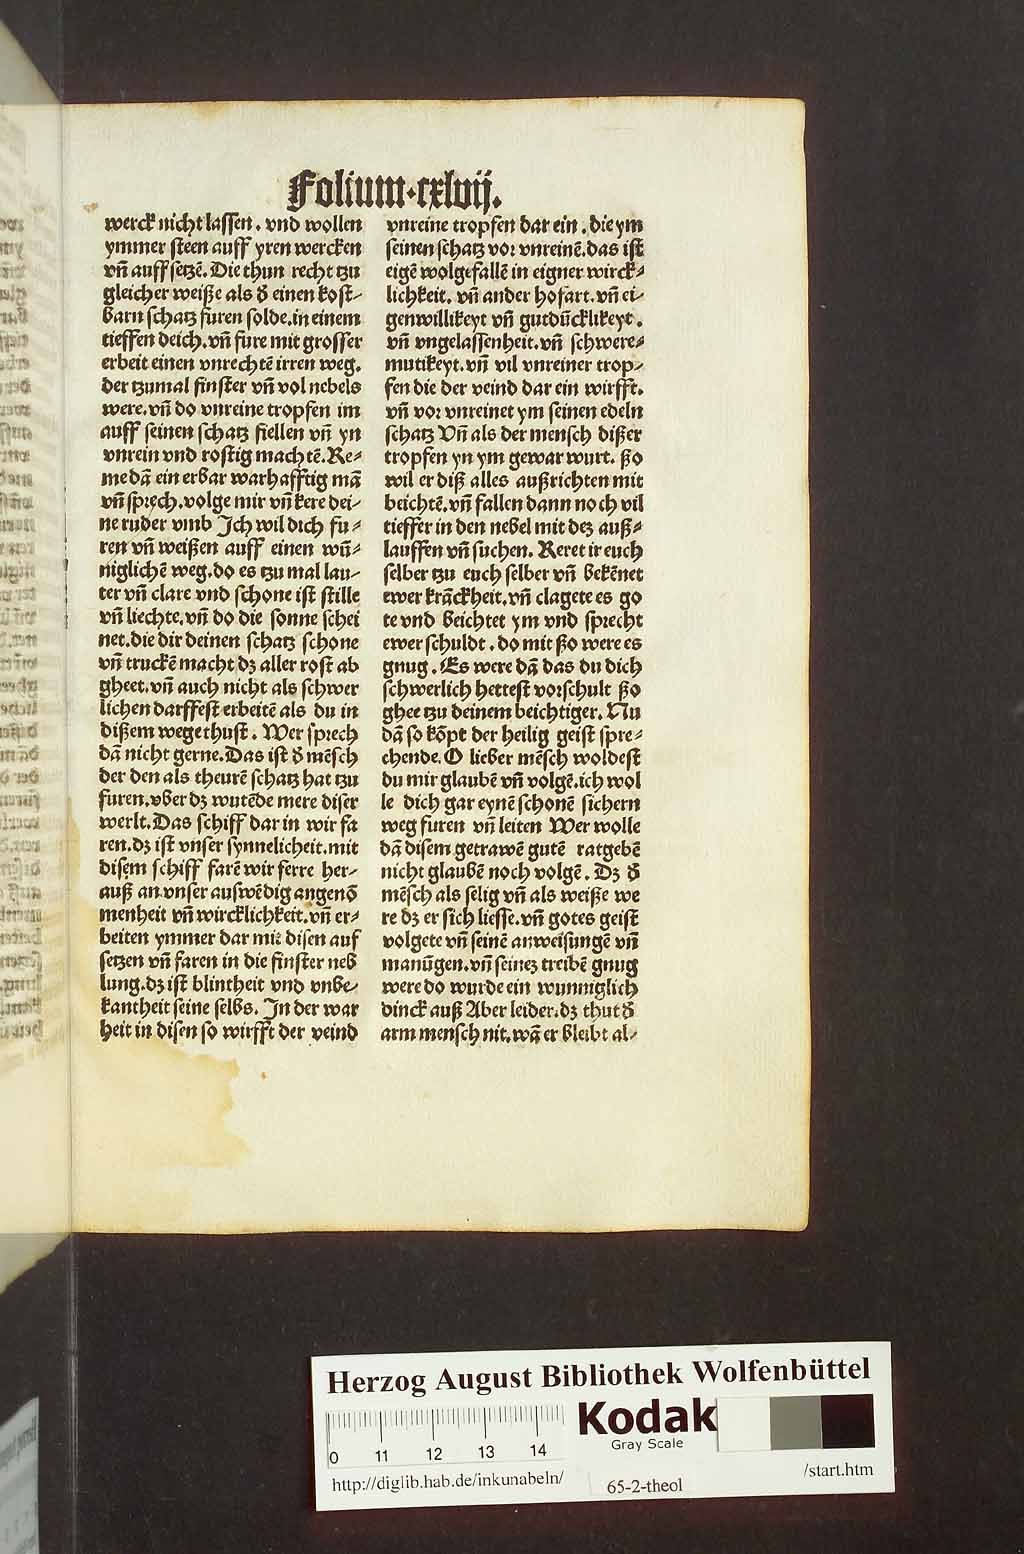 Folium·cxlvij.
werck nicht lassen. vnd wollen
ymmer steen auff yren wercken
vñ auff setzē. Die thun recht tzu
gleicher weiße als d̄ einen kost-
barn schatz furen solde.in einem
tieffen deich.vñ fure mit grosser
erbeit einen vnrechtē irren weg.
der tzumal finster vñ vol nebels
were.vñ do vnreine tropfen im
auff seinen schatz fiellen vñ yn
vnrein vnd rostig machtē.Ke-
me dā ein erbar warhafftig mā
vñ sprech.volge mir vñ kere dei-
ne ruder vmb Jch wil dich fu-
ren vñ weißen auff einen wū-
niglichē weg.do es tzu mal lau-
ter vñ clare vnd schone ist stille
vñ liechte.vñ do die sonne schei
net.die dir deinen schatz schone
vñ truckē macht dz aller rost ab
gheet.vñ auch nicht als schwer
lichen darffest erbeitē als du in
dißem wege thust. Wer sprech
dā nicht gerne.Das ist d̄ mēsch
der den als theurē schatz hat tzu
furen.vber dz wutēde mere diser
werlt.Das schiff dar in wir fa
ren.dz ist vnser synnelicheit.mit
disem schiff farē wir ferre her-
auß an vnser auswēdig angenō
menheit vñ wircklichkeit.vñ er-
beiten ymmer dar mit disen auf
setzen vñ faren in die finster neb
lung.dz ist blintheit vnd vnbe-
kantheit seine selbs. Jn der war
heit in disen so wirfft der veind
vnreine tropfen dar ein. die ym
seinen schatz vor vnreinē.das ist
eigē wolgefallē in eigner wirck-
lichkeit. vñ ander hofart.vñ ei-
genwillikeyt vñ gutdūcklikeyt.
vñ vngelassenheit.vñ schwere-
mutikeyt.vñ vil vnreiner trop-
fen die der veind dar ein wirfft.
vñ vor vnreinet ym seinen edeln
schatz Vñ als der mensch dißer
tropfen yn ym gewar wurt. ßo
wil er diß alles außrichten mit
beichtē.vñ fallen dann noch vil
tieffer in den nebel mit dez auß-
lauffen vñ suchen. Keret ir euch
selber tzu euch selber vñ bekēnet
ewer krāckheit.vñ clagete es go
te vnd beichtet ym vnd sprecht
ewer schuldt. do mit ßo were es
gnug. Es were dā das du dich
schwerlich hettest vorschult ßo
ghee tzu deinem beichtiger. Nu
dā so kōpt der heilig geist spre-
chende. O lieber mēsch woldest
du mir glaubē vñ volgē.ich wol
le dich gar eynē schonē sichern
weg furen vñ leiten Wer wolle
dā disem getrawē gutē ratgebē
nicht glaubē noch volgē. Dz d̄
mēsch als selig vñ als weiße we
re dz er sich liesse.vñ gotes geist
volgete vñ seinē anweisungē vñ
manūgen.vñ seinez treibē gnug
were do wurde ein wunniglich
dinck auß Aber leider.dz thut d̄
arm mensch nit.wā er bleibt al-
Herzog August Bibliothek Wolfenbüttel
0 11 12 13 14
Kodak
Gray Scale
http://diglib.hab.de/inkunabeln/
65-2-theol
/start.htm